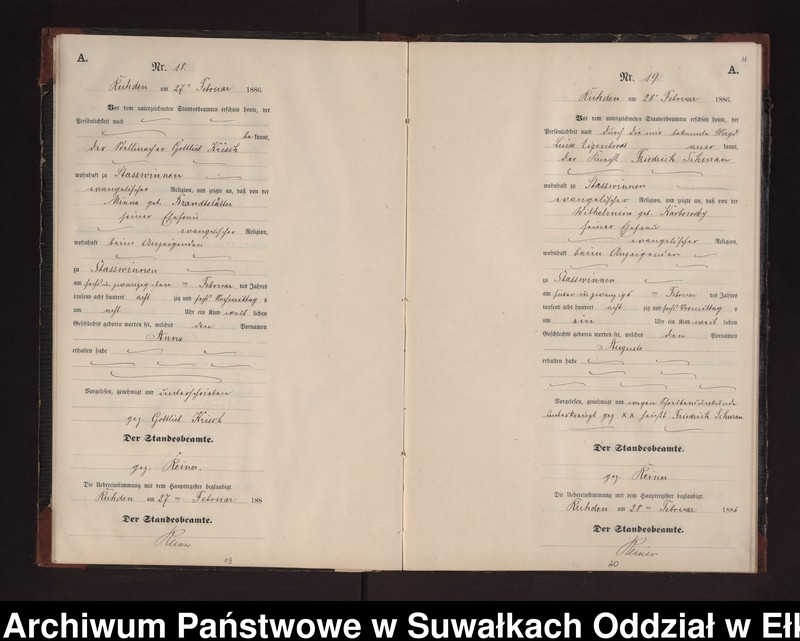 A.
Nr. 18.
Ruhden am 27ten Februar 1886.
Vor dem unterzeichneten Standesbeamten erschien heute, der
Persönlichkeit nach
be kannt,
der Gottlieb
wohnhaft zu Stasswinnen
evangelischer Religion, und zeigte an, daß von der
Minna geb. Brandstäter
seiner Ehefrau
evangelischer Religion,
wohnhaft beim Anzeigenden
zu Stasswinnen
am sechs u. zwanzigsten ten Februar des Jahres
tausend acht hundert acht zig und sechs Nachmittag s
um acht Uhr ein Kind weib lichen
Geschlechts geboren worden sei, welches den Vornamen
Anna
erhalten habe
Vorgelesen, genehmigt und unterschrieben
gez. Gottlieb
Der Standesbeamte.
gez. Reiner.
Die Uebereinstimmung mit dem Hauptregister beglaubigt.
Ruhden am 27 ten Februar 188
Der Standesbeamte.
Reiner
19
A.
Nr. 19.
Ruhden am 28ten Februar 1886.
Vor dem unterzeichneten Standesbeamten erschien heute, der
Persönlichkeit nach durch die mir bekannte Magd
Luise aner kannt,
der Knecht Friedrich
wohnhaft zu Stasswinnen
evangelischer Religion, und zeigte an, daß von der
Wilhelmine geb.
seiner Ehefrau
evangelischer Religion,
wohnhaft beim Anzeigenden
zu Stasswinnen
am ten Februar des Jahres
tausend acht hundert acht zig und sechs Vormittag s
um ein Uhr ein Kind weib lichen
Geschlechts geboren worden sei, welches den Vornamen
Auguste
erhalten habe
Vorgelesen, genehmigt und wegen Schreibensunkunde
unterkreuzt gez. x x x heißt Friedrich
Der Standesbeamte.
gez. Reiner
Die Uebereinstimmung mit dem Hauptregister beglaubigt.
Ruhden am 28 ten Februar 1886
Der Standesbeamte.
Reiner
20
Archiwum Państwowe w Suwałkach Oddział w Eł